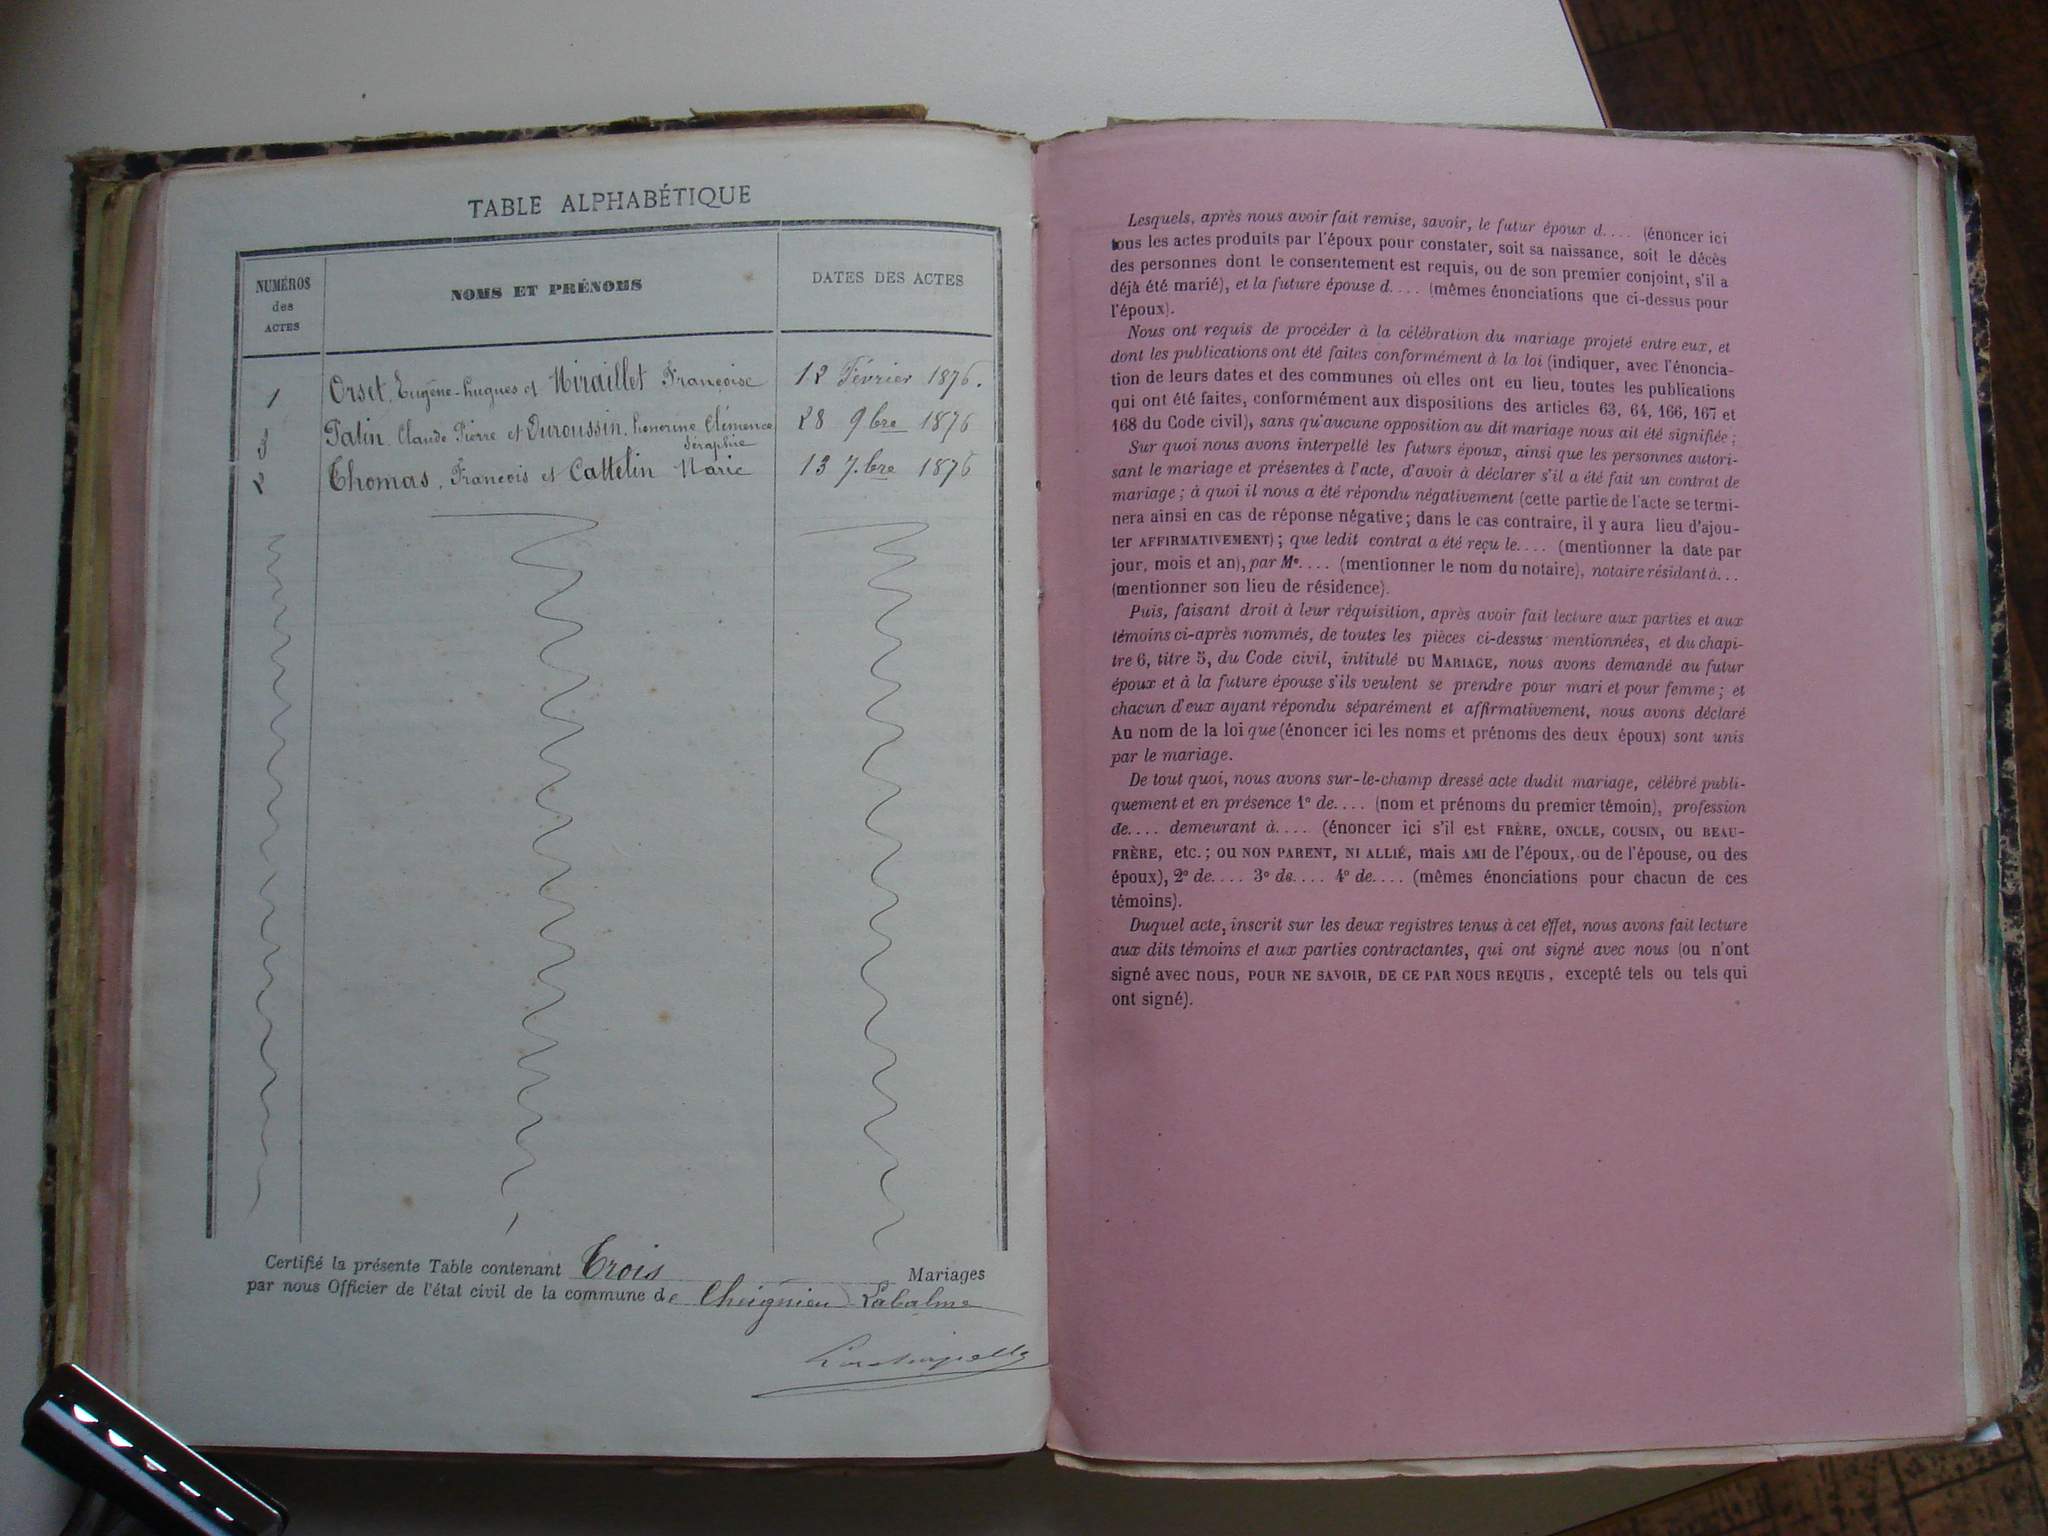 TABLE ALPHABÉTIQUE
NUMÉROS
des
ACTES
NOMS ET PRÉNOMS
DATES DES ACTES
1 Orset, Eugène-hugues et Miraillet Françoise 12 Février 1876.
3 Patin, Claude Pierre et Duroussin, honorine Clémence 28 9.bre 1876
Séraphie
2 Thomas, François et Cattelin Marie 13 7.bre 1876
Certifié la présente Table contenant Trois Mariages
par nous Officier de l'état civil de la commune de Cheignieu Labalme
Lesquels, après nous avoir fait remise, savoir, le futur époux d.... (énoncer ici
tous les actes produits par l'époux pour constater, soit sa naissance, soit le décès
des personnes dont le consentement est requis, ou de son premier conjoint, s'il a
déjà été marié), et la future épouse d.... (mêmes énonciations que ci-dessus pour
l'époux).
Nous ont requis de procéder à la célébration du mariage projeté entre eux, et
dont les publications ont été faites conformément à la loi (indiquer, avec l'énoncia-
tion de leurs dates et des communes où elles ont eu lieu, toutes les publications
qui ont été faites, conformément aux dispositions des articles 63, 64, 166, 167 et
168 du Code civil), sans qu'aucune opposition au dit mariage nous ait été signifiée ;
Sur quoi nous avons interpellé les futurs époux, ainsi que les personnes autori-
sant le mariage et présentes à l'acte, d'avoir à déclarer s'il a été fait un contrat de
mariage ; à quoi il nous a été répondu négativement (cette partie de l'acte se termi-
nera ainsi en cas de réponse négative ; dans le cas contraire, il y aura lieu d'ajou-
ter AFFIRMATIVEMENT) ; que ledit contrat a été reçu le.... (mentionner la date par
jour, mois et an), par Me.... (mentionner le nom du notaire), notaire résidant à...
(mentionner son lieu de résidence).
Puis, faisant droit à leur réquisition, après avoir fait lecture aux parties et aux
témoins ci-après nommés, de toutes les pièces ci-dessus mentionnées, et du chapi-
tre 6, titre 5, du Code civil, intitulé DU MARIAGE, nous avons demandé au futur
époux et à la future épouse s'ils veulent se prendre pour mari et pour femme ; et
chacun d'eux ayant répondu séparément et affirmativement, nous avons déclaré
Au nom de la loi que (énoncer ici les noms et prénoms des deux époux) sont unis
par le mariage.
De tout quoi, nous avons sur-le-champ dressé acte dudit mariage, célébré publi-
quement et en présence 1° de.... (nom et prénoms du premier témoin), profession
de.... demeurant à.... (énoncer ici s'il est FRÈRE, ONCLE, COUSIN, OU BEAU-
FRÈRE, etc. ; ou NON PARENT, NI ALLIÉ, mais AMI de l'époux, ou de l'épouse, ou des
époux), 2° de.... 3° de.... 4° de.... (mêmes énonciations pour chacun de ces
témoins).
Duquel acte, inscrit sur les deux registres tenus à cet effet, nous avons fait lecture
aux dits témoins et aux parties contractantes, qui ont signé avec nous (ou n'ont
signé avec nous, POUR NE SAVOIR, DE CE PAR NOUS REQUIS, excepté tels ou tels qui
ont signé).